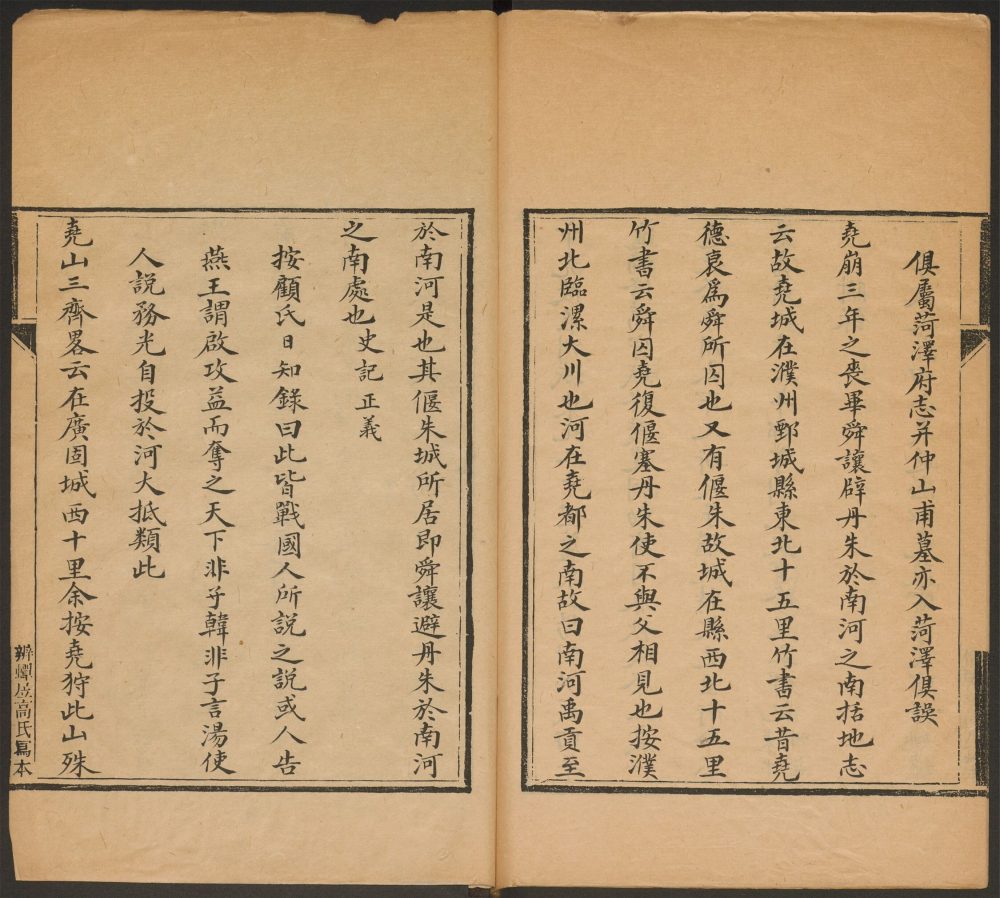 俱屬菏澤府志并仲山甫墓亦入菏澤俱誤
堯崩三年之喪畢舜讓辟丹朱於南河之南括地志
云故堯城在濮州鄄城縣東北十五里竹書云昔堯
德衰爲舜所囚也又有偃朱故城在縣西北十五里
竹書云舜囚堯復偃塞丹朱使不與父相見也按濮
州北臨漯大川也河在堯都之南故曰南河禹貢至
於南河是也其偃朱城所居即舜讓避丹朱於南河
之南處也史記正義
按顧氏日知錄曰此皆戰國人所説之説或人告
燕王謂啟攻益而奪之天下韓非子言湯使
人説務光自投於河大抵類此
堯山三齊畧云在廣固城西十里余按堯狩此山殊
辨蟫居高氏寫本